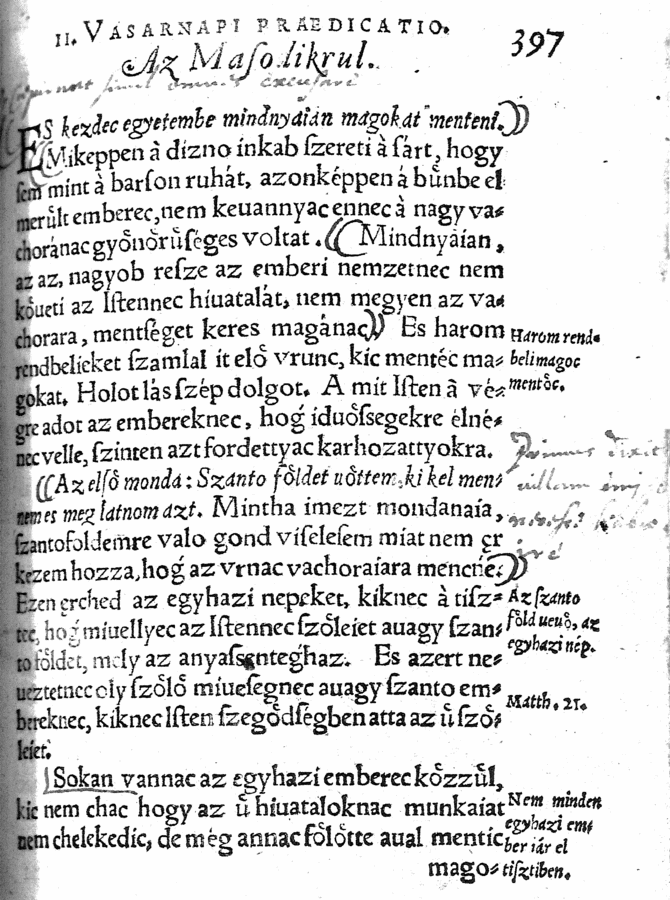 II. VASARNAPI PRÆDICATIO.
397
Az Masodikrul.
ES kezdec egyetembe mindnyáián magokat menteni.
Mikeppen à dizno inkab szereti à sárt, hogy
sem mint à barson ruhát, azonképpen á bůnbe el
merůlt emberec, nem keuannyac ennec à nagy va⸗
choránac gyo̊no̊růséges voltat. Mindnyáian,
az az, nagyob resze az emberi nemzetnec nem
ko̊ueti az Istennec híuatalát, nem megyen az va⸗
chorara, mentséget keres magánac Es harom
rendbelieket szamlal it elo̊ vrunc, kic mentéc ma⸗
gokat. Holot lás szép dolgot. A mit Isten à vé⸗
gre adot az embereknec, hoǵ iduo̊ssegekre élné⸗
nec velle, szinten azt fordettyac karhozattyokra.
Az elso̊ monda: Szanto fo̊ldet uo̊ttem, ki kel men⸗
nem es meg latnom azt. Mintha imezt mondanaía,
szantofoldemre valo gond víselesem míat nem ęr
kezem hozza, hoǵ az vrnac vachoraíara mennie.
Ezen ęrched az egyhazi nepeket, kiknec à tisz⸗
tec, hoǵ míuellyec az Istennec szo̊leíet auagy szan⸗
to fo̊ldet, mely az anyaszenteghaz. Es azert ne⸗
ueztetnec oly szo̊lo̊ míuesegnec auagy szanto em⸗
bereknec, kiknec Isten szego̊dségben atta az ů szo̊⸗
leíet.
Sokan vannac az egyhazi emberec ko̊zzůl,
kic nem chac hogy az ů híuataloknac munkaíat
nem chelekedic, de még annac fo̊lo̊tte aual mentic
mago⸗
Harom rend⸗
beli magoc
mento̊c.
Az szanto
fo̊ld ueuo̊, az
egyhazi nép.
Matth. 21.
Nem minden
egyhazi em⸗
ber iár el
tisztiben.